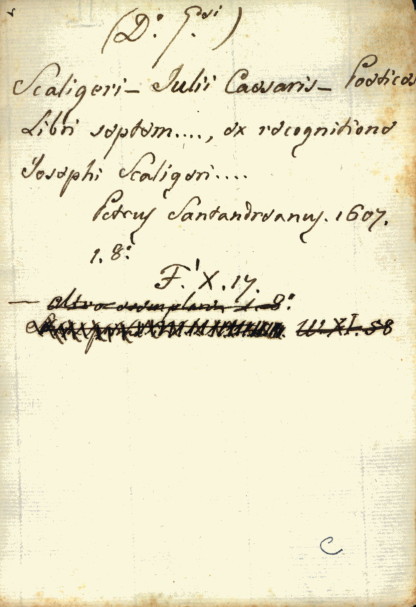 (D.º G.si)
Scaligeri – Julii Caesaris – Poetices
Libri septem...., ex recognitione
Josephi Scaligeri....
Petrus Santandreanus. 1607.
1. 8.º
F. X. 17.
— altro esemplare 1. 8.º
XI. 58
C